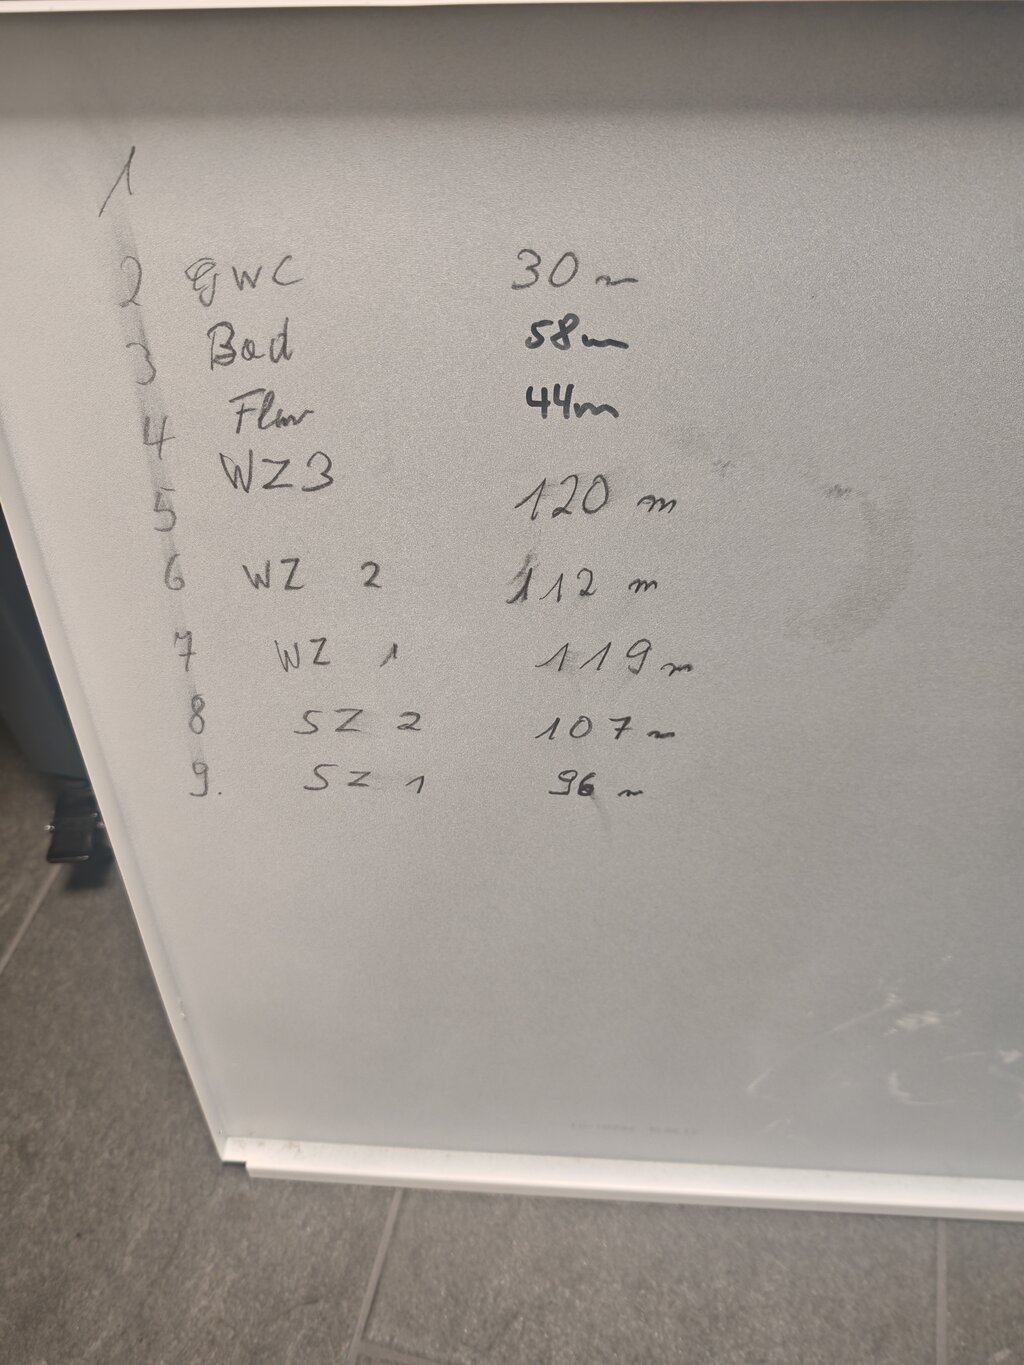 1
2 GWC 30 m
3 Bad 58m
4 Flur 44m
5 WZ3 120 m
6 WZ 2 112 m
7 WZ 1 119 m
8 SZ 2 107 m
9. SZ 1 96 m